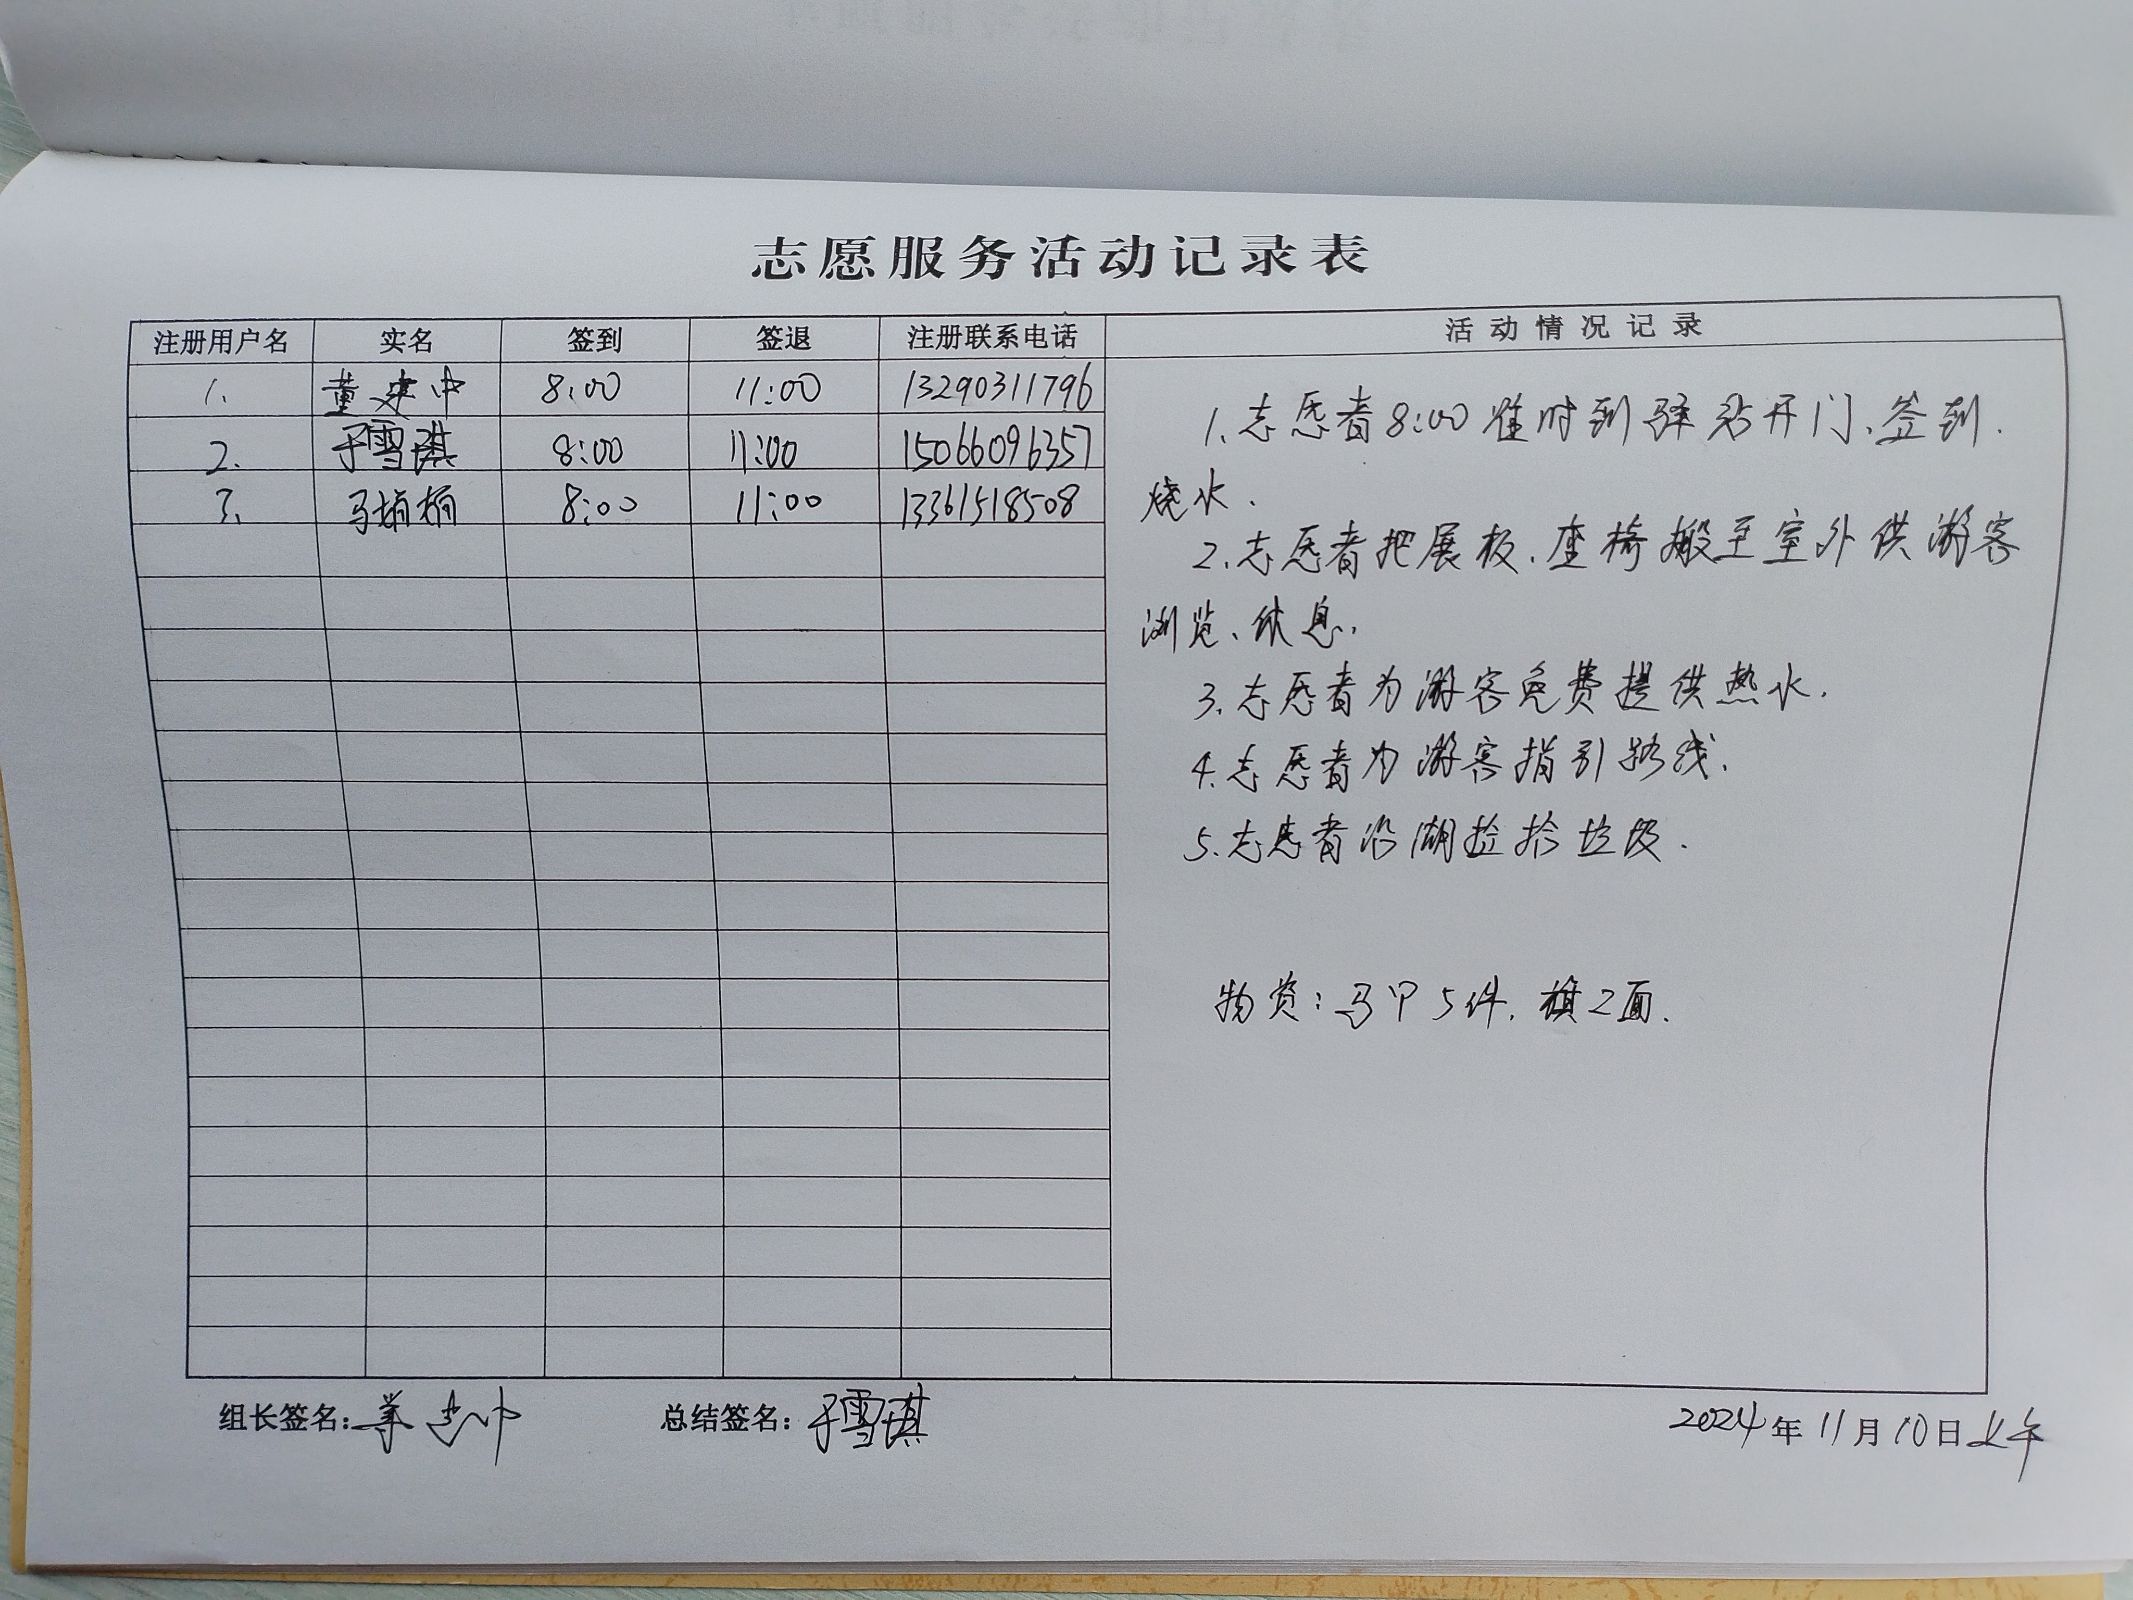 志愿服务活动记录表
注册用户名 实名 签到 签退 注册联系电话 活动情况记录
1. 董建中 8:00 11:00 13290311796
2. 于雪琪 8:00 11:00 15066096357
3. 马楠楠 8:00 11:00 13361518508
1.志愿者8:00准时到驿站开门、签到.
烧水.
2.志愿者把展板、座椅搬至室外供游客
浏览、休息.
3.志愿者为游客免费提供热水.
4.志愿者为游客指引路线.
5.志愿者沿湖捡拾垃圾.
物资:马甲5件,旗2面.
组长签名:董建中 总结签名:于雪琪 2024年11月10日上午